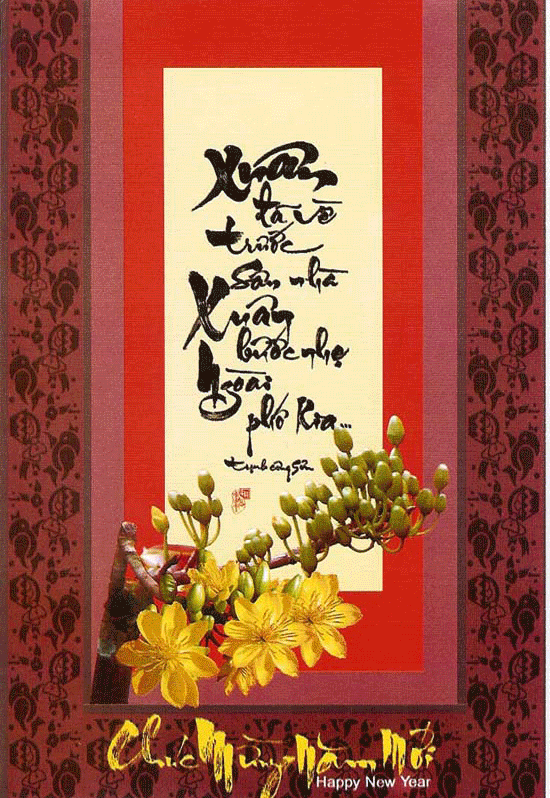 Xuân
đã về
trước
sân nhà
Xuân
bước nhẹ
Ngoài
phố kia...
trịnh công sơn
Chúc Mừng Năm Mới
Happy New Year